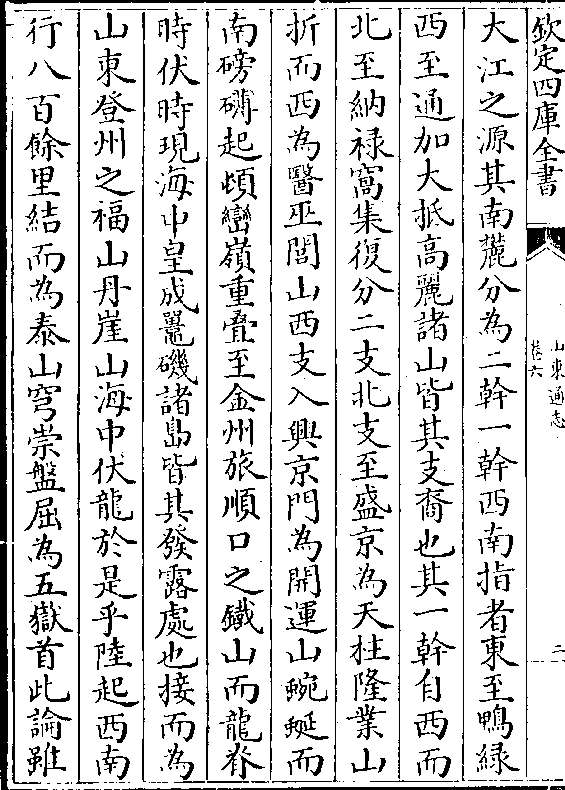 欽定四庫全書
山東通志
卷六
二
大江之源其南麓分為二幹一幹西南指者東至鴨緑
西至通加大抵高麗諸山皆其支裔也其一幹自西而
北至納禄窩集復分二支北支至盛京為天柱隆業山
折而西為醫巫閭山西支入興京門為開運山蜿蜒而
南磅礴起頓巒嶺重疊至金州旅順口之鐡山而龍脊
時伏時現海中皇成鼉磯諸島皆其發露處也接而為
山東登州之福山丹崖山海中伏龍於是乎陸起西南
行八百餘里結而為泰山穹崇盤屈為五嶽首此論雖